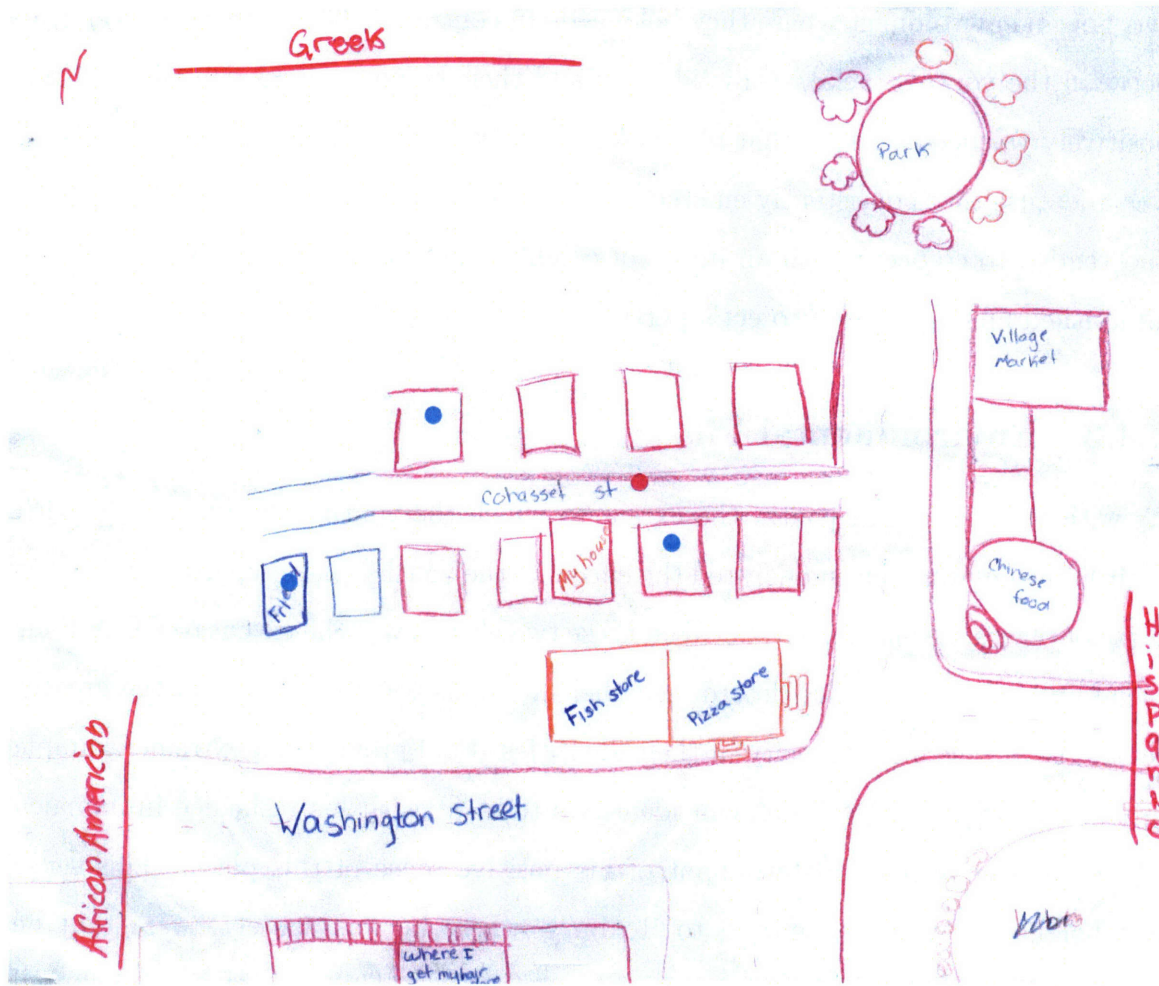 N
Greeks
Park
Village
Market
Cohasset st
My house
Friend
Chinese
food
Hispanic
Fish store
Pizza store
African Americans
Washington Street
where I
get my hair